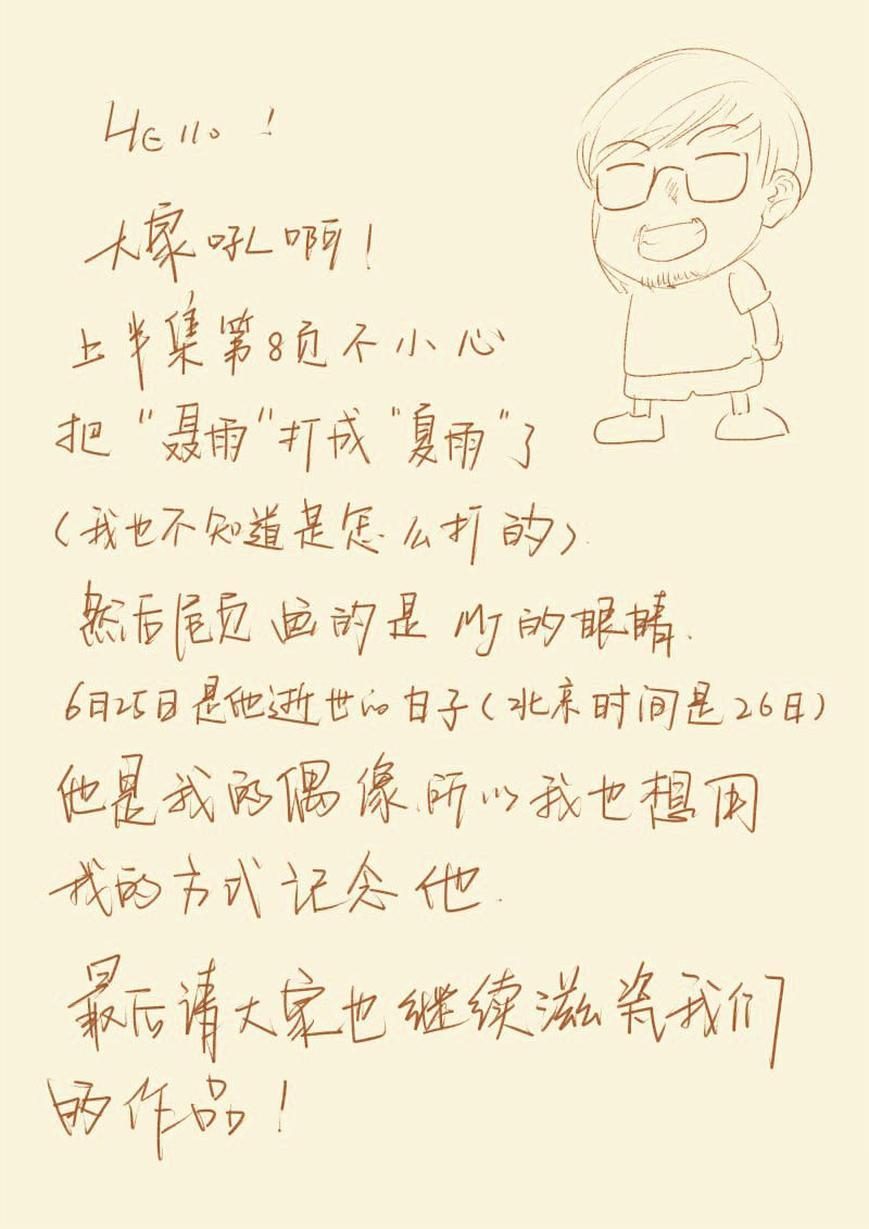 Hello!
大家吼啊!
上半集第8页不小心
把"聂雨"打成"夏雨"了
(我也不知道是怎么打的).
然后尾页画的是MJ的眼睛.
6月25日是他逝世的日子(北京时间是26日)
他是我的偶像.所以我也想用
我的方式记念他.
最后请大家也继续滋瓷我们
的作品!